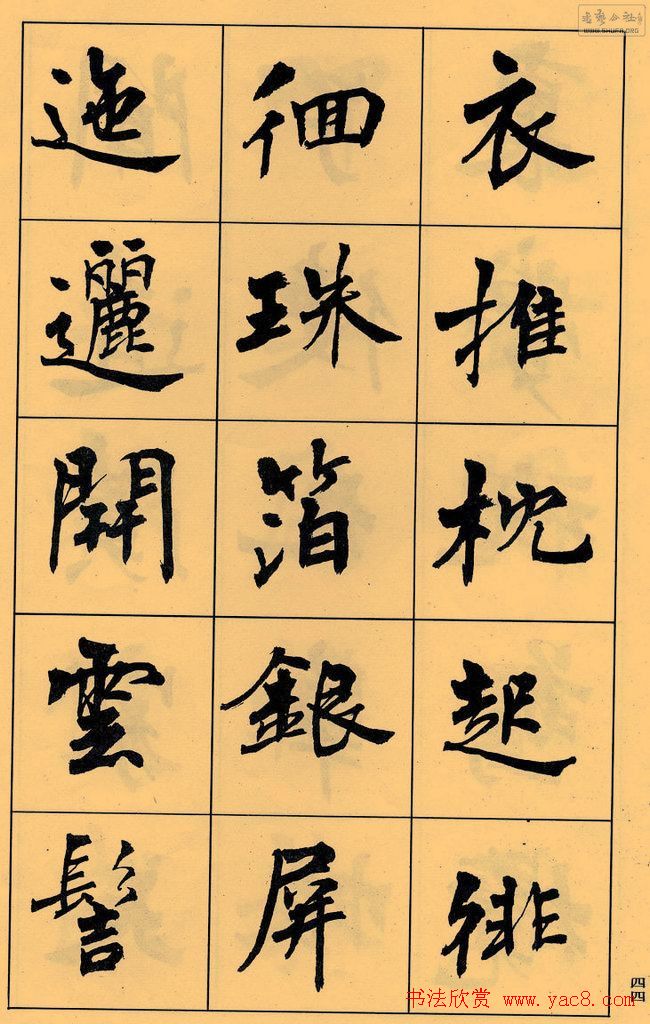 衣推枕起徘
徊珠箔銀屏
迤邐開雲髻
四四
书法欣赏 www.yac8.com
WWW.SHUFA.ORG